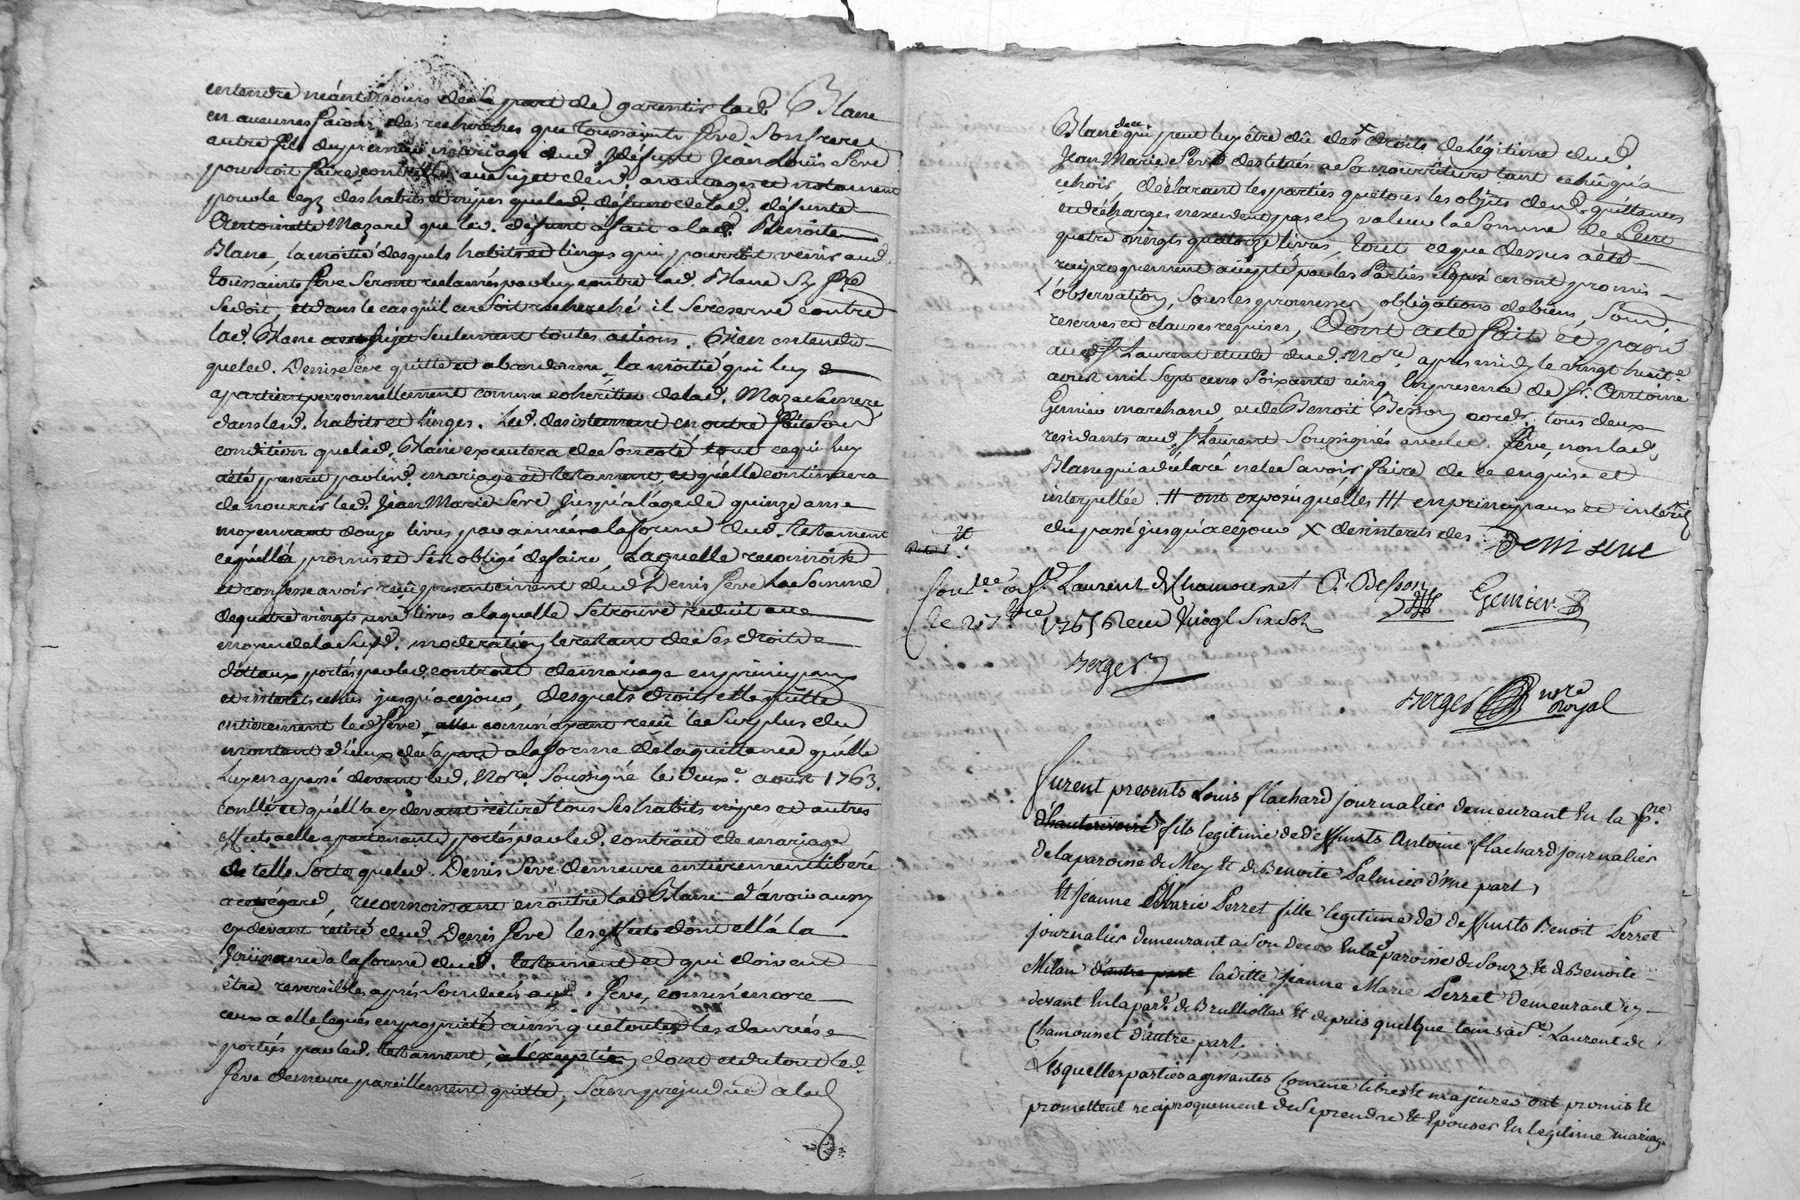 entendre néantmoins de la part de garentir lad. Blanc
en aucunes façons des recherches que Toussaints Seve son frere
autre fils du premier mariage dud. défunt Jean Louis Seve
pourroit faire contre elle au sujet desd. avantages et notament
pour le legs des habits et nipes que led. défunt de lad. défunte
Antoinette Mazard que led. défunt a fait a lad. Benoite
Blanc, la moitié desquels habits et linges qui pourroit venir aud.
Toussaints Seve seront reclamés par luy contre lad. Blanc s'il
se doit, et dans le cas qu'il en soit recherché il se reserve contre
lad. Blanc seulement toutes actions. Bien entendu
que led. Denis Seve quitte et abandonne la moitié qui luy
apartient personnellement comme coheritier de lad. Mazard sa mere
dans lesd. habits et linges. Led. desistement en outre fait sous
condition que lad. Blanc executera de son coté tout ce qui luy
a été prescrit par lesd. mariage et testament, et qu'elle continuera
de nourrir led. Jean Marie Seve jusqu'a l'age de quinze ans
moyennant douze livres par année a la forme dud. testament
ce qu'elle a promis et s'est obligé de faire, Laquelle reconnoit
et confesse avoir reçu presentement dud. Denis Seve la somme
de quatre vingts une livres a laquelle se trouve reduit au
moyen de la susd. moderation le restant de ses droits
dottaux portés par led. contrat de mariage en principaux
et interets echus jusqu'a ce jour, desquels droits elle quitte
entierement led. Seve comme ayant reçu le surplus du
montant d'iceux de sa part a la forme de la quittance qu'elle
luy en a passé devant led. No.re soussigné le deux.e aoust 1763.
et qu'elle a cy devant retiré tous ses habits nipes et autres
effets a elle apartenants portés par led. contrat de mariage
de telle sorte que led. Denis Seve demeure entierement liberé
a cet égard, reconnoissant en outre lad. Blanc d'avoir aussy
cy devant retiré dud. Denis Seve les effets dont elle a la
joüissance a la forme dud. testament et qui doivent
être reversibles après son decés aud. Seve, comme encore
ceux a elle legués en propriété ainsi que toutes les danrées
portées par led. testament, a l'exeption, dont et du tout led.
Seve demeure pareillement quitte, sans prejudice a lad.
Blanc de ce qui peut luy être dû des + droits de légitime dud.
Jean Marie Seve destinés a sa nourriture tant echûs qu'a
echoir, déclarant les parties que tous les objets desd. quittances
et décharges n'excedent pas en valeur la somme de Cent
quatre vingts quatorze livres, tout ce que dessus a été
reciproquement accepté par les Parties lesquels en ont promis
l'observation, sous les promesses, obligations de biens, soum.
reserves et clauses requises, Dont acte fait et passé
aud. St Laurent etude dud. No.re, apres midy le vingt huit.e
aoust mil sept cens soixante cinq, en presence de Sr. Antoine
Gernier marchand, et de Benoit Besson cord.r, tous deux
residants aud. St Laurent soussignés avec led. Seve, non lad.
Blanc qui a déclaré ne le savoir faire de ce enquise et
interpellée. # ont exposé qu'elles ### en principaux et interêts
du passé jusqu'a ce jour X des interets des
Dem seve
Con.lée a St. Laurent de Chamousset B. Besson Gernier
Le 27 7bre 1765 Reçu vingt six sols
Berger
Berger no.re Royal
Furent presents Louis flachard journalier demeurant en la p.sse
d'hauterivoire fils legitime de deffunts Antoine flachard journalier
de la paroisse de Meys et de Benoite Palmier d'une part,
Et jeanne Marie Perret fille legitime de deffunts Benoit Perret
journalier demeurant a son deces en la paroisse de Souzy et de Benoite
Milan d'autre part laditte jeanne Marie Perret demeurant cy
devant en la par. de Brullioles et depuis quelque tems a St. Laurent de
Chamousset d'autre part.
Lesquelles parties agissantes comme libres et majeures ont promis et
promettent reciproquement de se prendre et epouser en legitime mariage